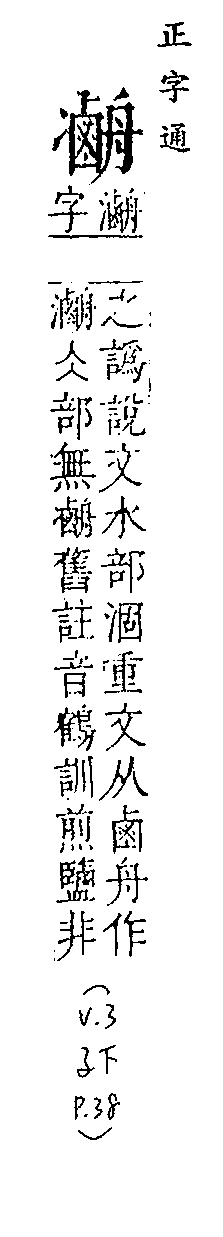 正字通
字
之譌說文水部涸重文从鹵舟作
仌部無舊註音鶴訓煎鹽非
(
v.3
子下
P.38
)